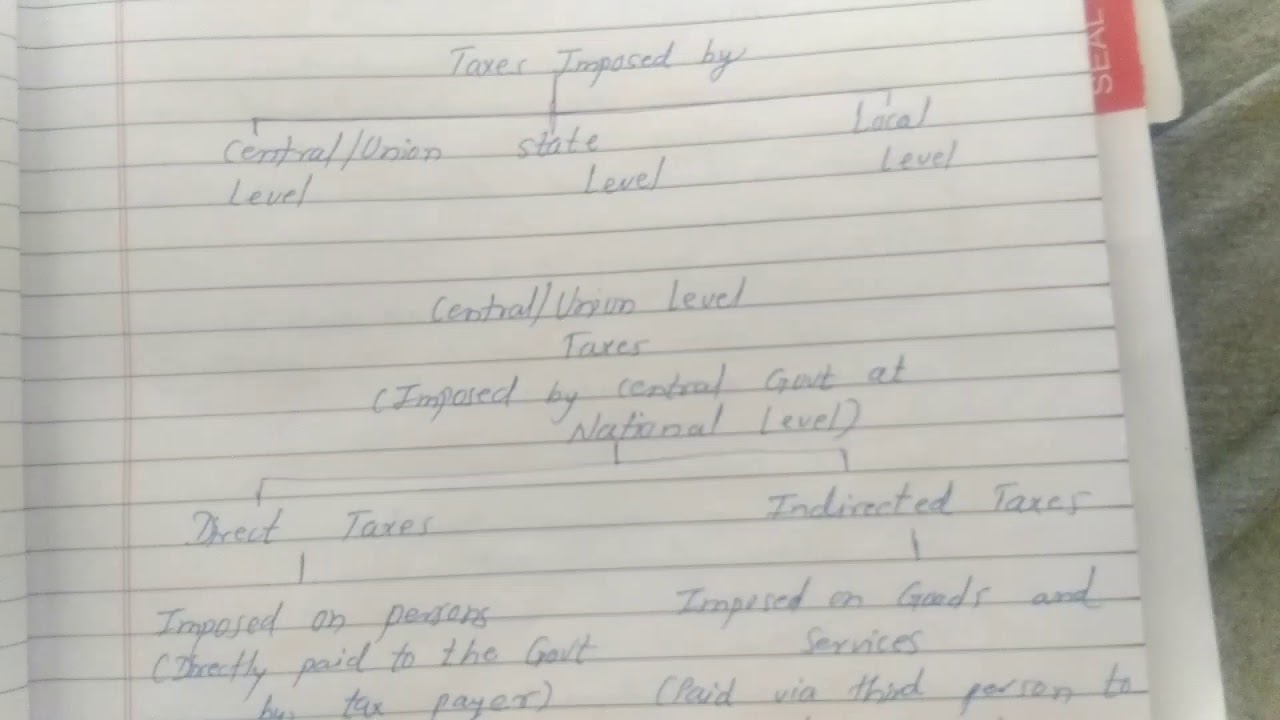 Taxes Imposed by
Central/Union state Local
Level Level Level
Central/Union Level
Taxes
(Imposed by central Govt at
National Level)
Direct Taxes
Indirected Taxes
Imposed on persons
(Directly paid to the Govt
by tax payer)
Imposed on Goods and
Services
(Paid via third person to
SEAL